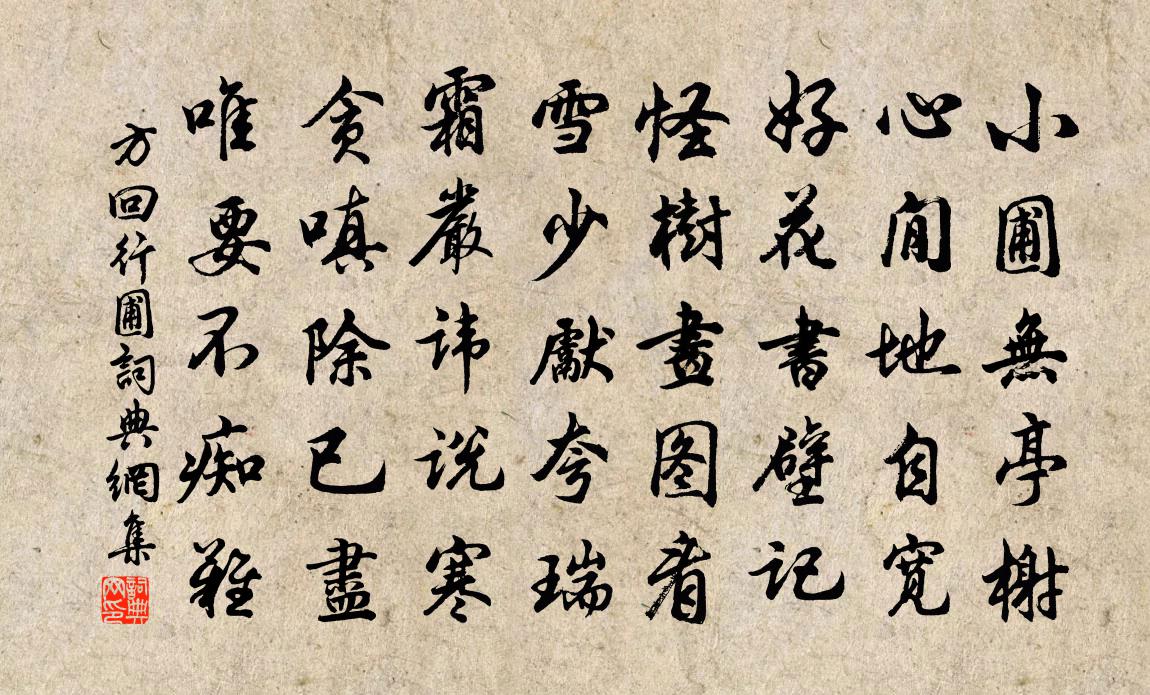 小圃無亭榭
心閒地自寬
好花書壁記
怪樹畫图看
雪少獻夸瑞
霜嚴諱說寒
貪嗔除已盡
唯要不痴難
方回行圃詞典網集
詞典网印